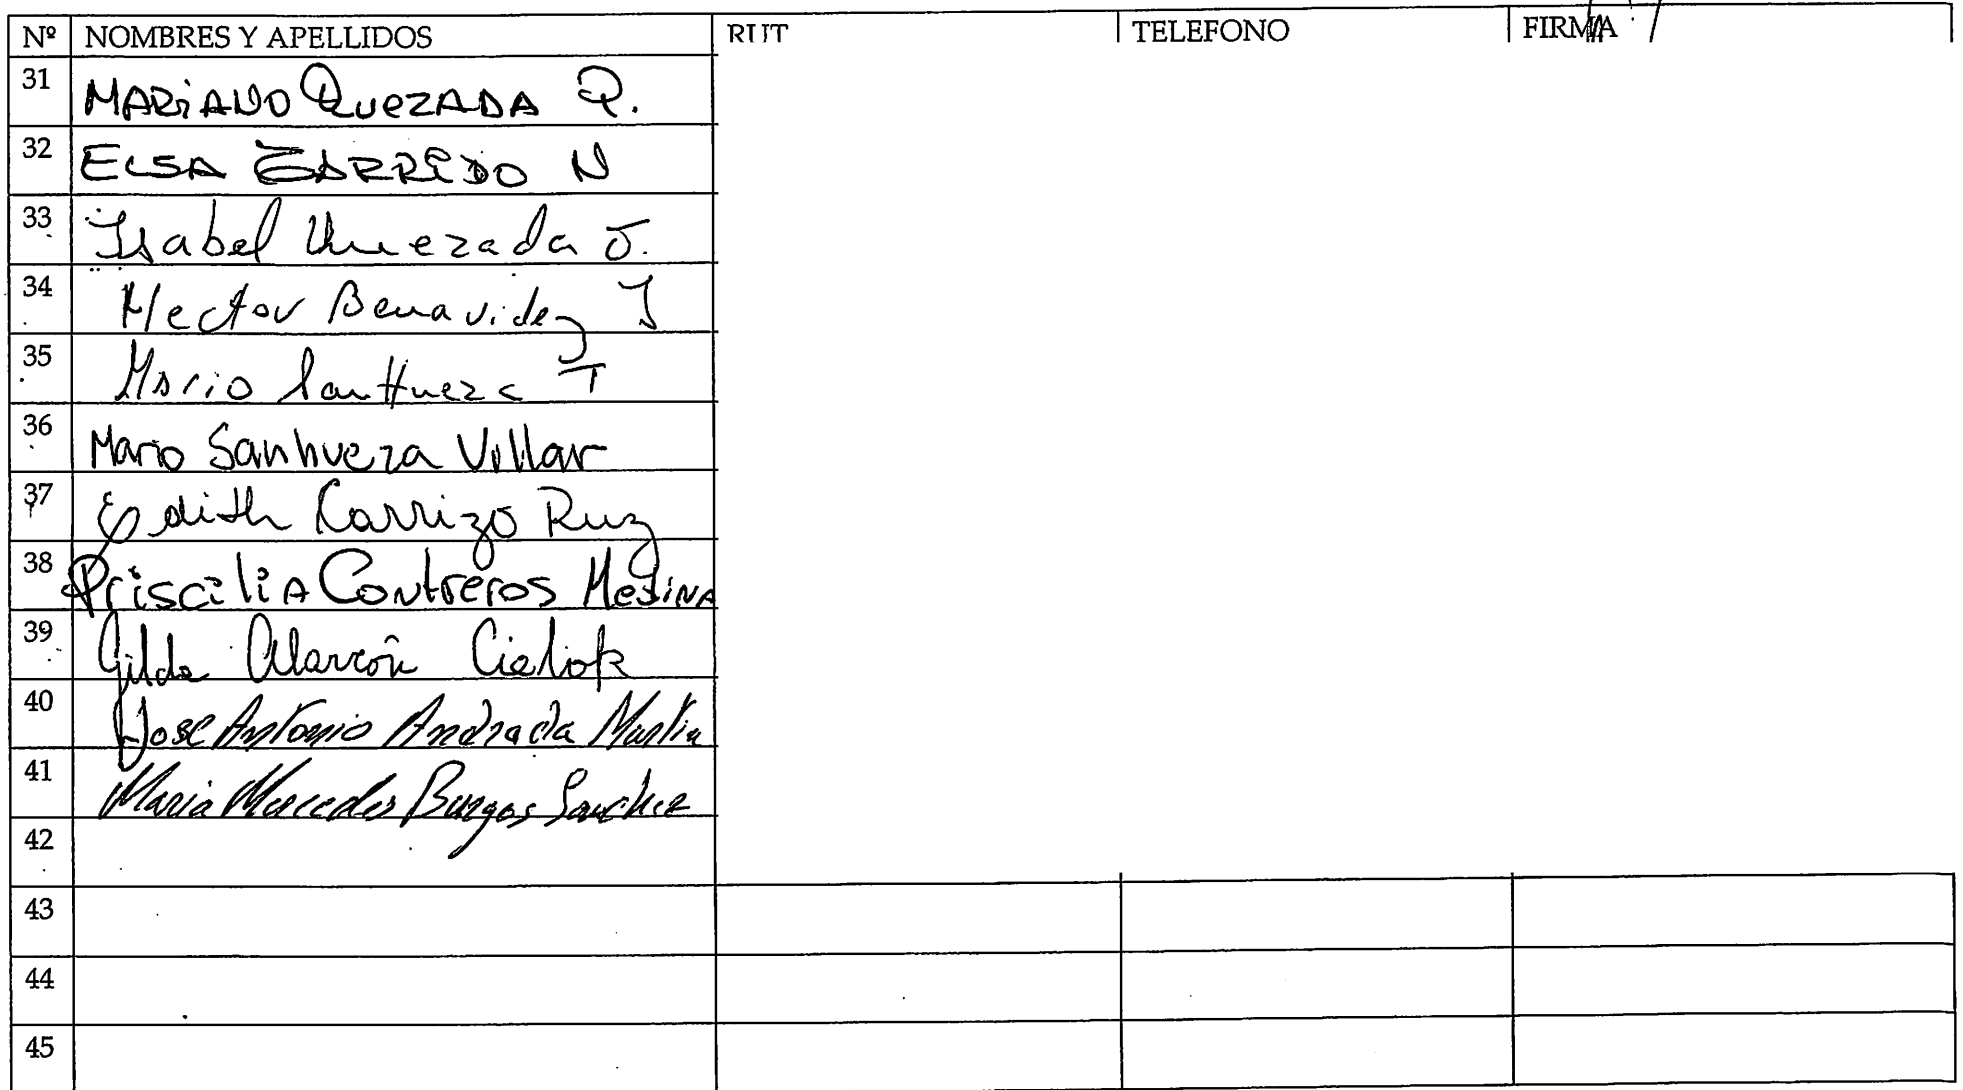 Nº NOMBRES Y APELLIDOS RUT TELEFONO FIRMA
31 MARIANO QUEZADA Q.
32 ELSA GARRIDO N
33 Isabel Quezada J.
34 Hector Benavidez J
35 Mario SanHueza T
36 Mario Sanhueza Villar
37 Edith Carrizo Ruz
38 Priscilia Contreras Medina
39 Gilda Alarcón
40 Jose Antonio Andrada Martin
41 Maria Mercedes Burgos Sanchez
42
43
44
45